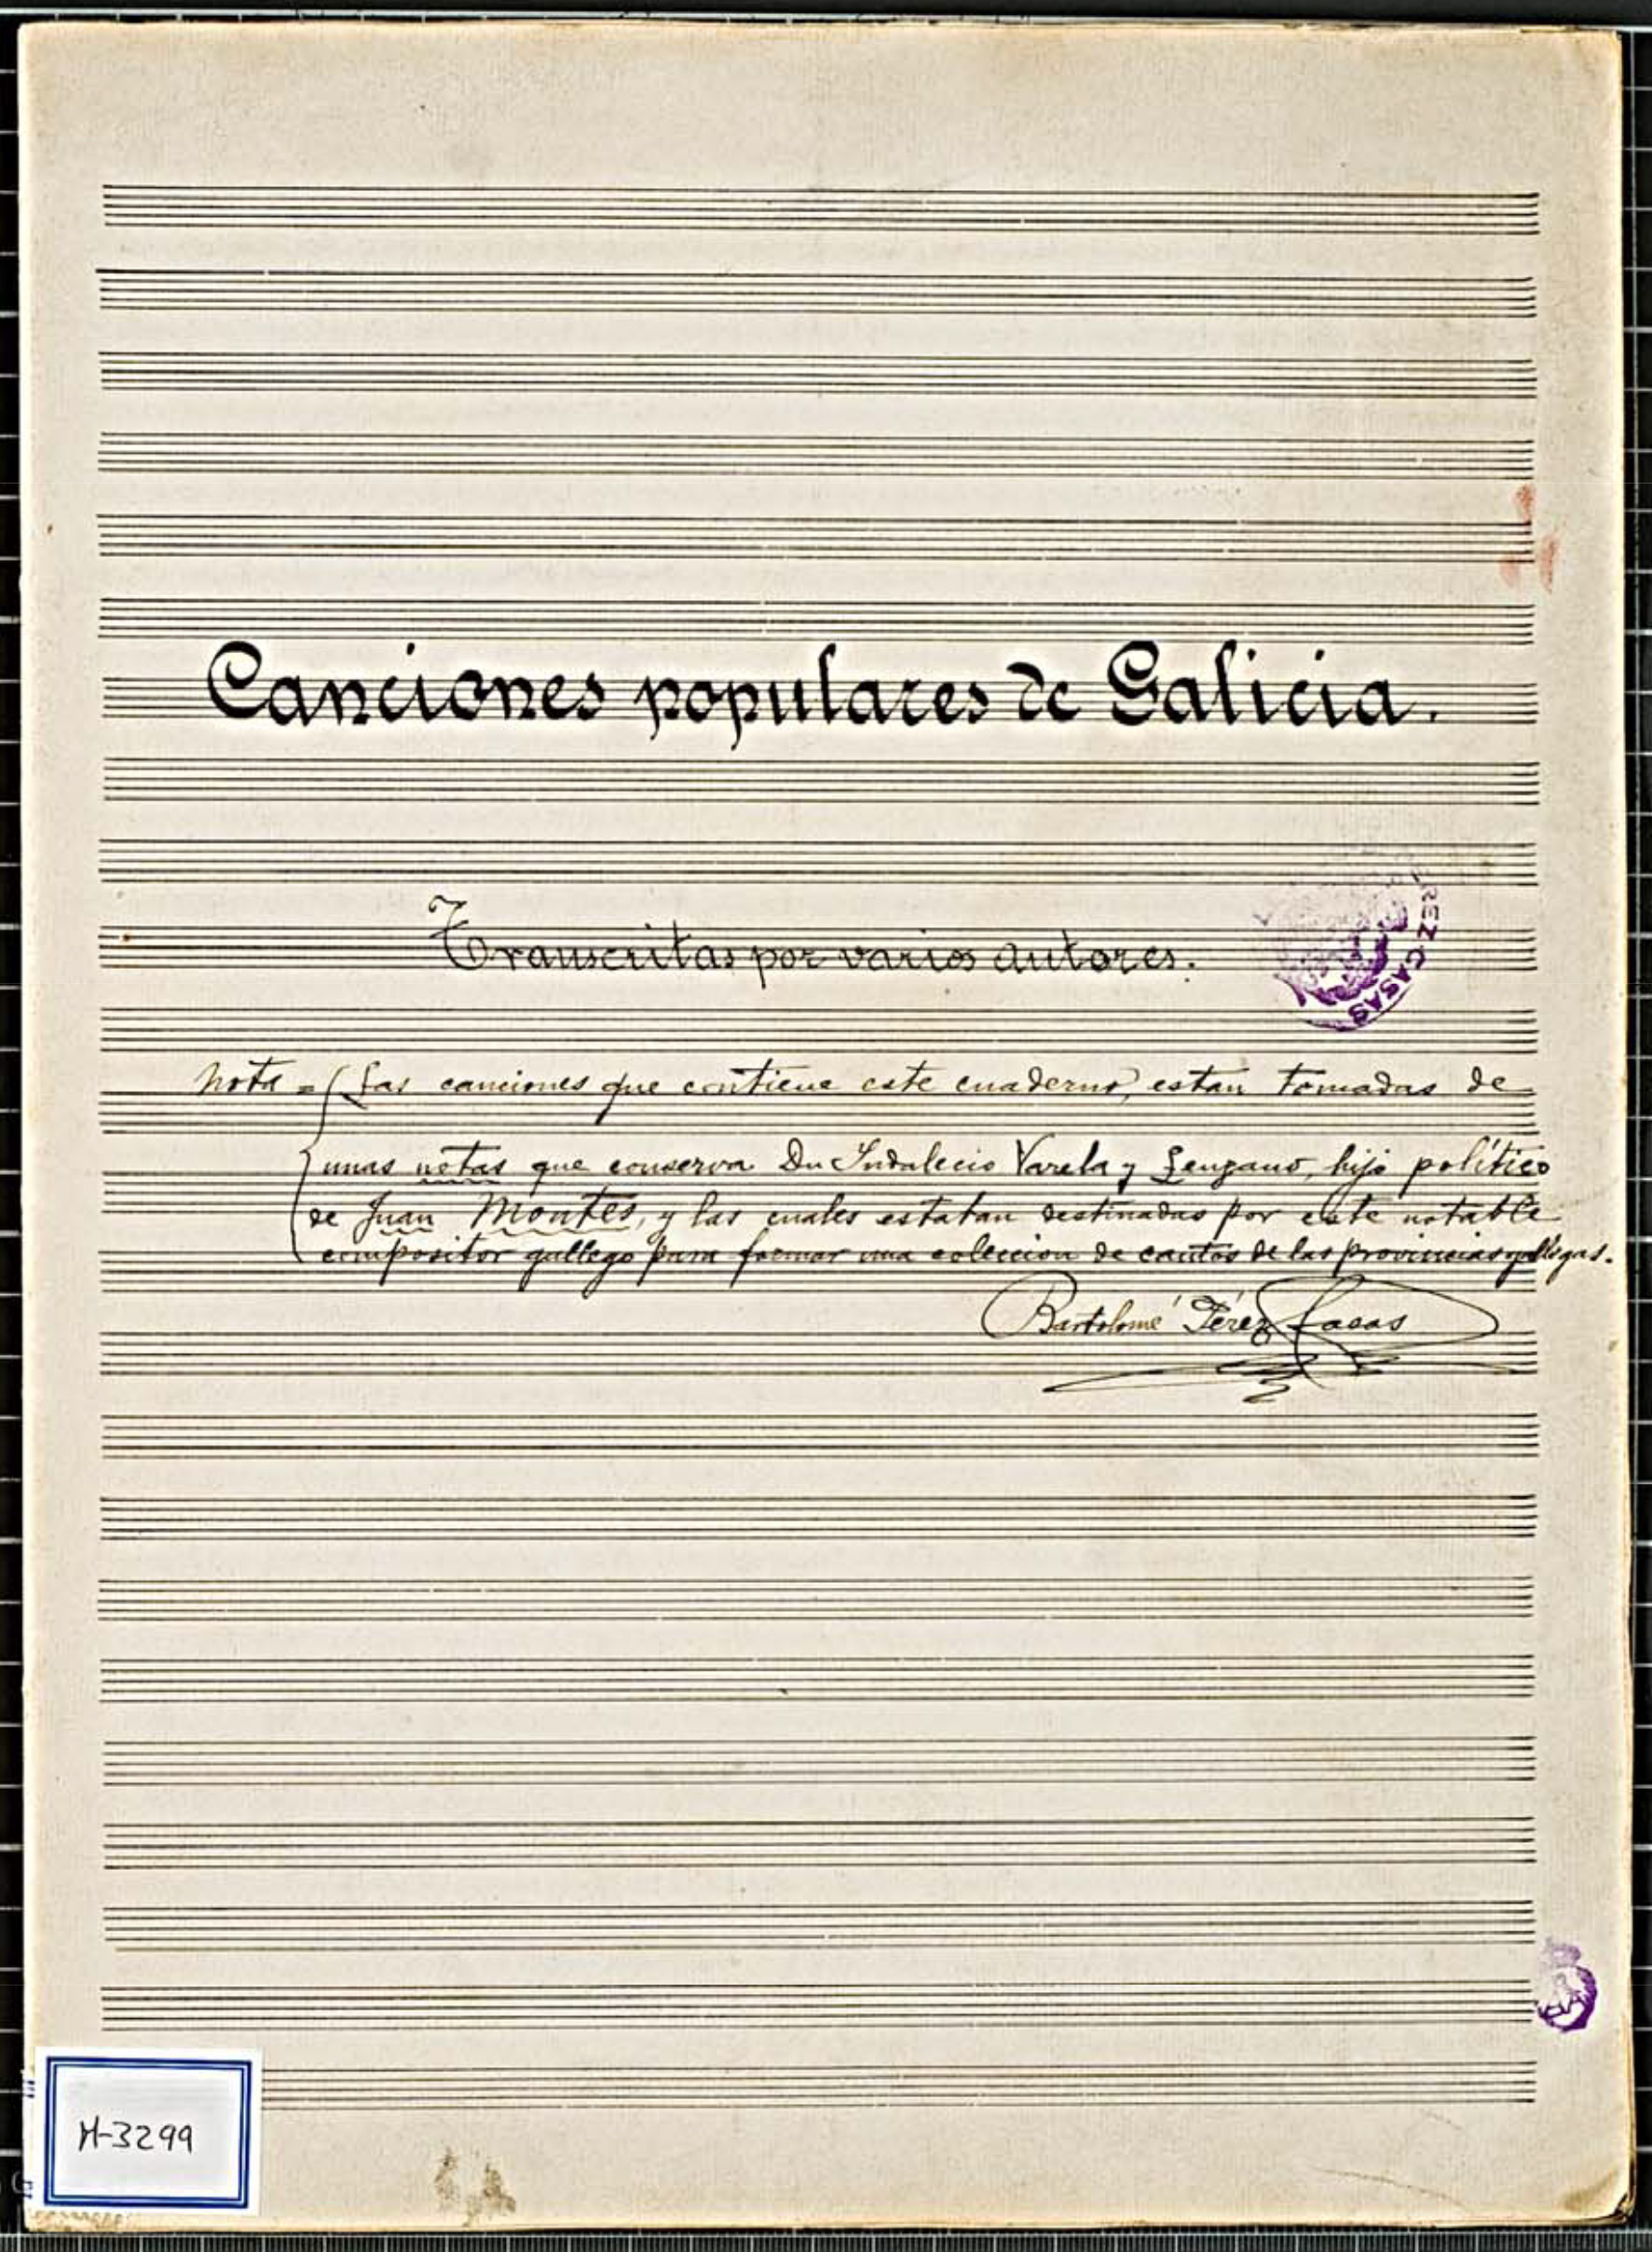 Canciones populares de Galicia.
Transcritas por varios autores.
REZ CASAS
Nota = Las canciones que contiene este cuaderno, estan tomadas de
unas notas que conserva Dn Indalecio Varela y Lenzano, hijo político
de Juan Montes, y las cuales estaban destinadas por este notable
compositor gallego para formar una coleccion de cantos de las provincias gallegas.
Bartolomé Pérez Casas
M-3299